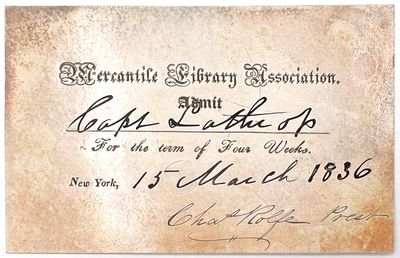 Mercantile Library Association.
Admit
Capt Lathrop
For the term of Four Weeks.
New York, 15 March 1836
Chas Rolfe Prest